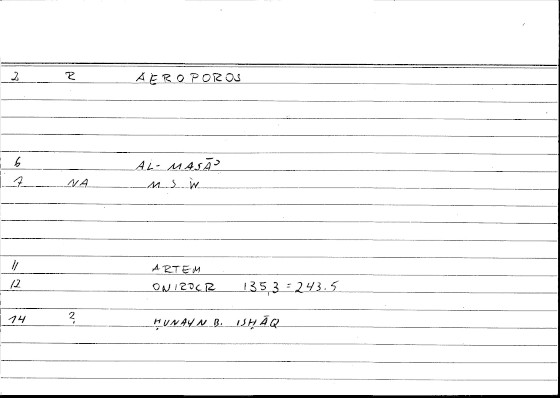 2 R AEROPOROS
6 AL-MASĀʾ
7 NA M S W
11 ARTEM
12 ONIROCR 135,3 = 243.5
14 ? ḤUNAYN B. ISḤĀQ